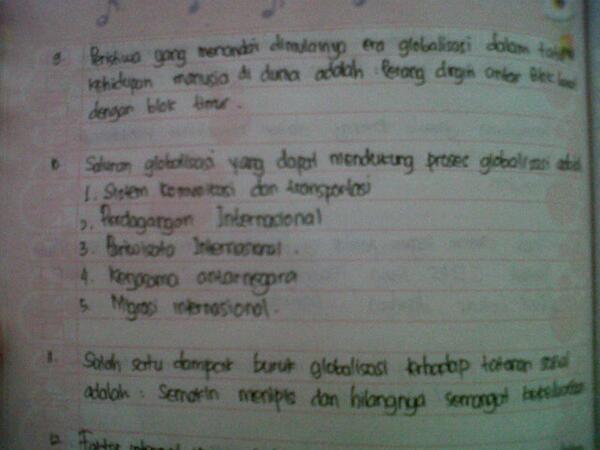 9 Peristiwa yang menandai dimulainya era globalisasi dalam
kehidupan manusia di dunia adalah : Perang dingin antar Blok
dengan blok timur.
10 Saluran globalisasi yang dapat mendukung proses globalisasi
1. Sistem komunikasi dan transportasi
2. Perdagangan Internasional
3. Pariwisata Internasional.
4. Kerjasama antarnegara
5. Migrasi internasional.
11. Salah satu dampak buruk globalisasi terhadap tatanan sosial
adalah : Semakin menipis dan hilangnya semangat
12. Faktor